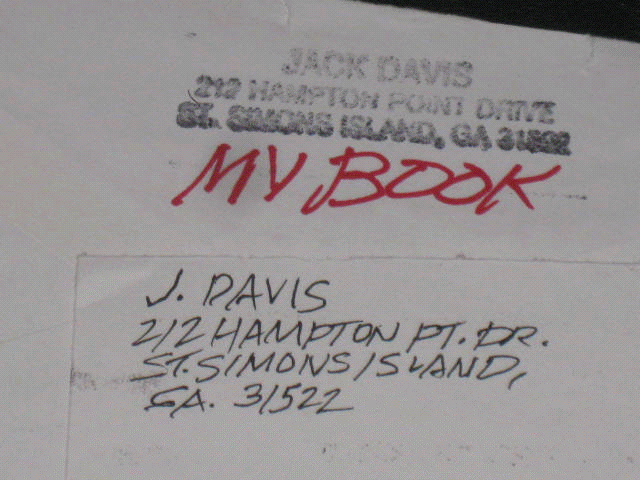 JACK DAVIS
212 HAMPTON POINT DRIVE
ST. SIMONS ISLAND, GA 31522
MY BOOK
J. DAVIS
212 HAMPTON PT. DR.
ST. SIMONS ISLAND,
GA. 31522